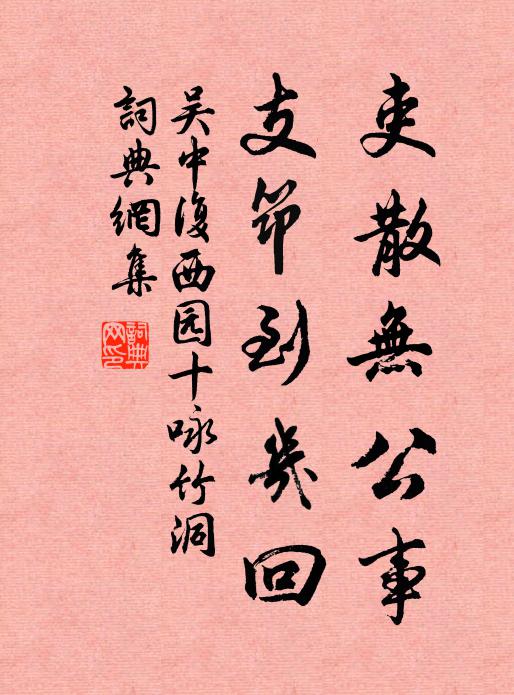 吏散無公事
支筇到幾回
吴中復西园十咏竹洞
詞典網集
詞典網印